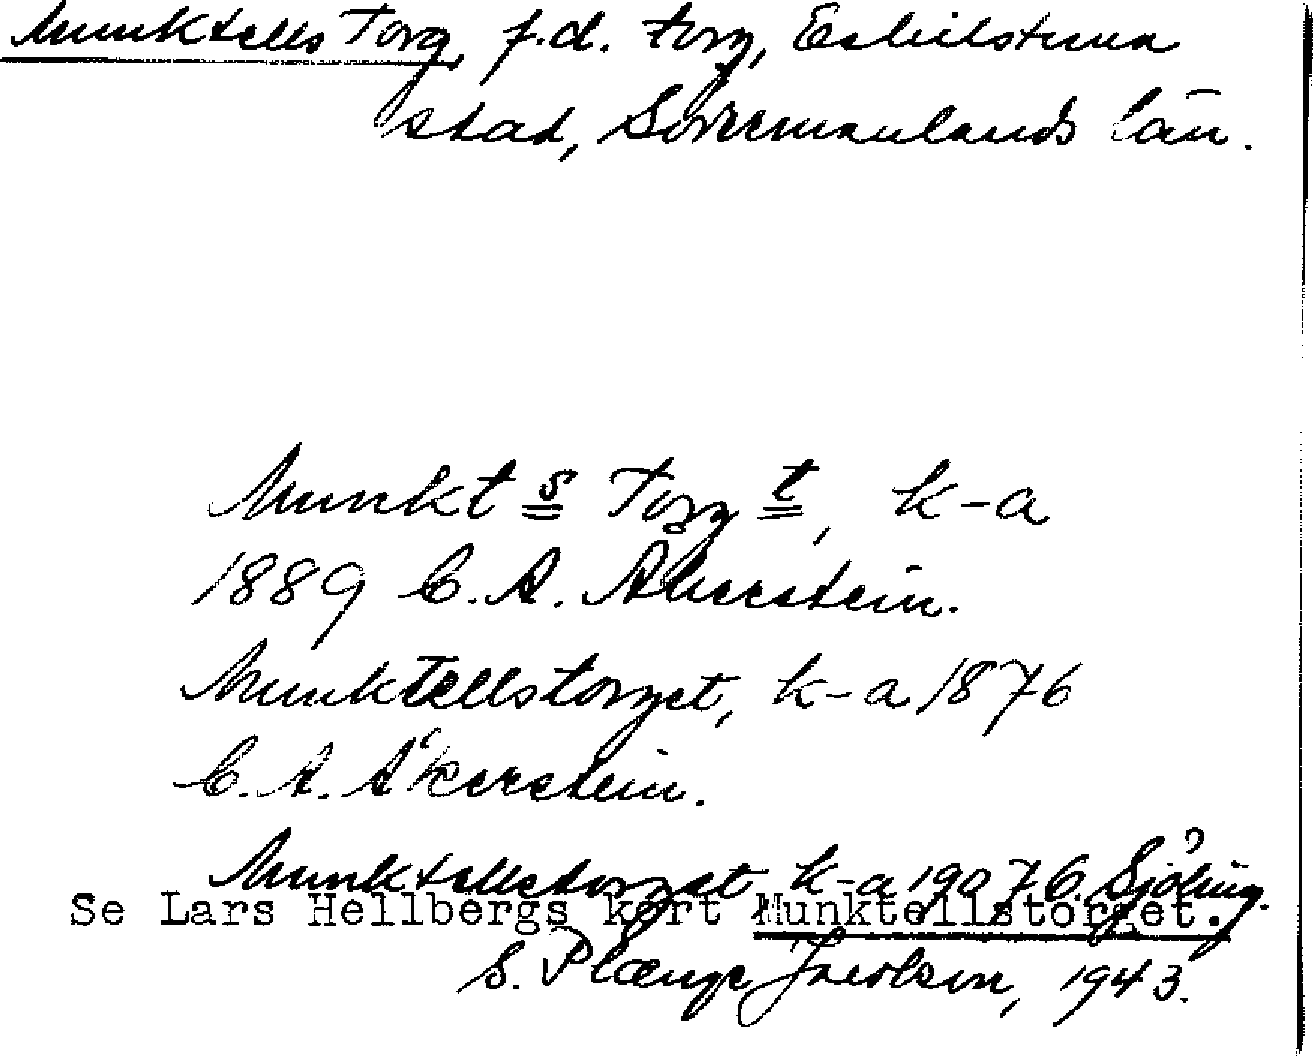 Munktells Torg, f.d. torg, Eskilstuna
stad, Södermanlands län.
Munkt s Torg t, k-a
1889 C. A. Åkerstein.
Munktellstorget, k-a 1876
C. A. Åkerstein.
Munktellstorget k-a 1907 C. Sjöling.
Se Lars Hellbergs kort Munktellstorget.
S. Plænge Jacobson, 1943.